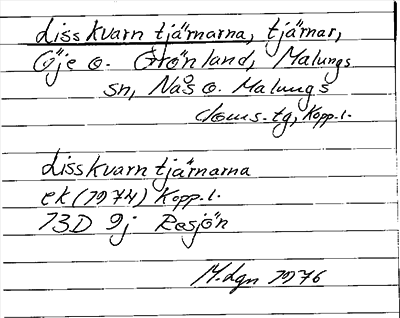 Lisskvarntjärnarna, tjärnar,
Öje o. Grönland, Malungs
sn, Nås o. Malungs
doms. tg, Kopp. l.
Lisskvarntjärnarna
ek (1974) Kopp. l.
13D 9j Resjön
M.dgn 1976